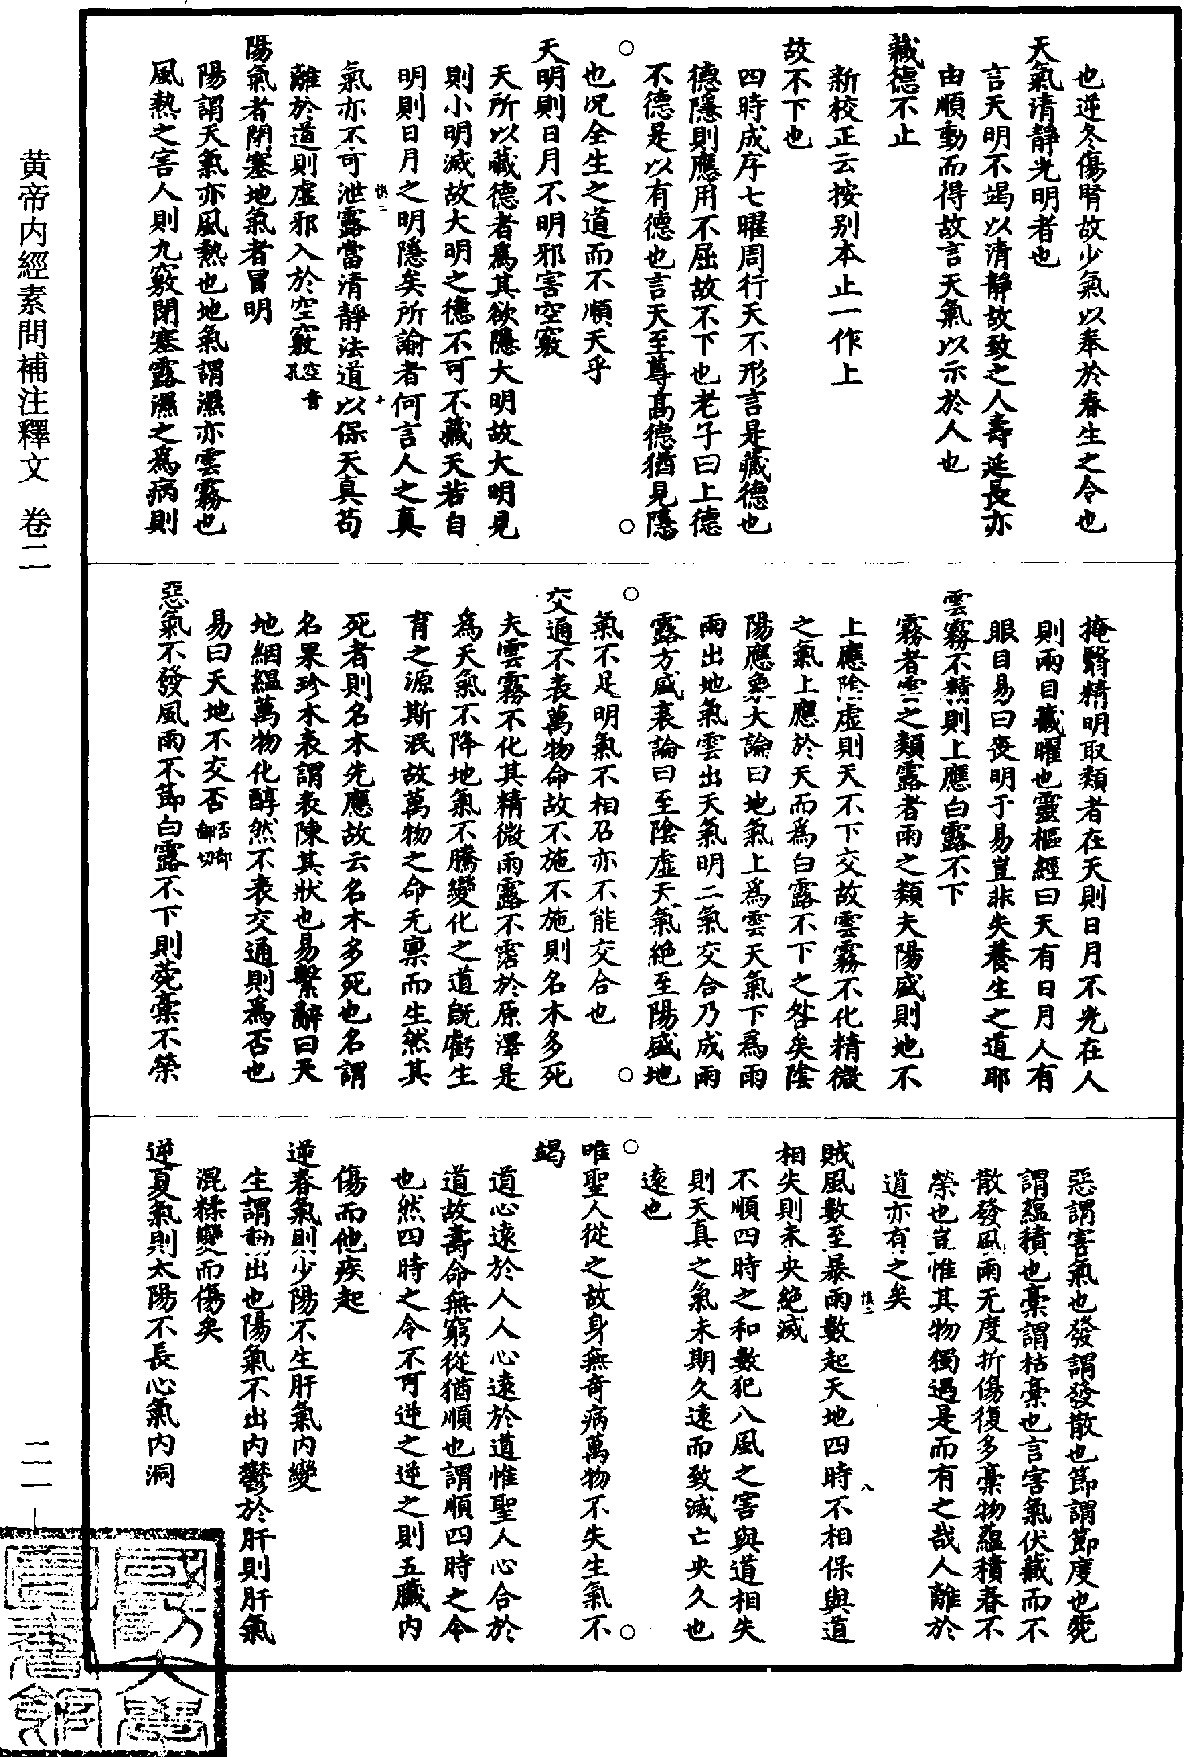 也逆冬傷腎故少氣以奉於春生之令也
天氣清靜光明者也
言天明不竭以清靜故致之人壽延長亦
由順動而得故言天氣以示於人也
藏德不止
新校正云按别本止一作上
故不下也
四時成序七曜周行天不形言是藏德也
德隱則應用不屈故不下也老子曰上德
不德是以有德也言天至尊高德猶見隱
也况全生之道而不順天乎
天明則日月不明邪害空竅
天所以藏德者爲其欲隱大明故大明見
則小明滅故大明之德不可不藏天若自
明則日月之明隱矣所諭者何言人之真
氣亦不可泄露當清靜法道以保天真苟
離於道則虚邪入於空竅空音孔
陽氣者閉塞地氣者冒明
陽謂天氣亦風熱也地氣謂濕亦雲霧也
風熱之害人則九竅閉塞露濕之爲病則
掩翳精明取類者在天則日月不光在人
則兩目藏曜也靈樞經曰天有日月人有
眼目易曰喪明于易豈非失養生之道耶
雲霧不精則上應白露不下
霧者雲之類露者雨之類夫陽盛則地不
上應陰虚則天不下交故雲霧不化精微
之氣上應於天而爲白露不下之咎矣陰
陽應象大論曰地氣上爲雲天氣下爲雨
雨出地氣雲出天氣明二氣交合乃成雨
露方盛衰論曰至陰虚天氣絶至陽盛地
氣不足明氣不相召亦不能交合也
交通不表萬物命故不施不施則名木多死
夫雲霧不化其精微雨露不霑於原澤是
爲天氣不降地氣不騰變化之道既虧生
育之源斯泯故萬物之命无禀而生然其
死者則名木先應故云名木多死也名謂
名果珍木表謂表陳其狀也易繫辭曰天
地絪緼萬物化醇然不表交通則爲否也
易曰天地不交否否部鄙切
惡氣不發風雨不節白露不下則菀槀不榮
惡謂害氣也發謂發散也節謂節度也菀
謂蘊積也槀謂枯槀也言害氣伏藏而不
散發風雨无度折傷復多槀物蘊積春不
榮也豈惟其物獨遇是而有之哉人離於
道亦有之矣
賊風數至暴雨數起天地四時不相保與道
相失則未央絶滅
不順四時之和數犯八風之害與道相失
則天真之氣未期久遠而致滅亡央久也
遠也
唯聖人從之故身無奇病萬物不失生氣不
竭
道心遠於人人心遠於道惟聖人心合於
道故壽命無窮從猶順也謂順四時之令
也然四時之令不可逆之逆之則五臟内
傷而他疾起
逆春氣則少陽不生肝氣内變
生謂動出也陽氣不出内鬱於肝則肝氣
混糅變而傷矣
逆夏氣則太陽不長心氣内洞
黄帝内經素問補注釋文 卷二
二一